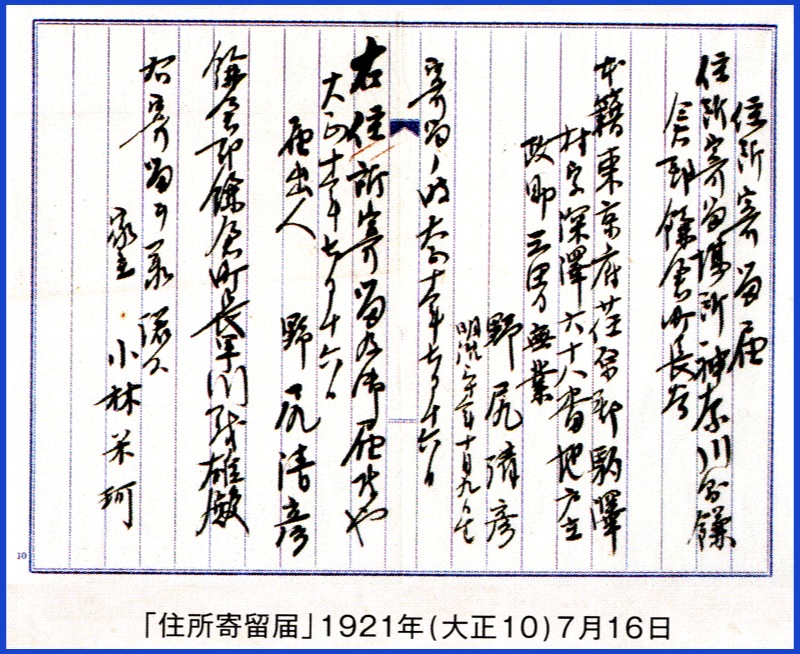 住所寄留届
住所寄留場所 神奈川縣鎌
倉郡鎌倉町長谷
本籍東京府荏原郡駒澤
村字深澤六十八番地戸主
政助三男無業
野尻清彦
明治三十年十月九日生
寄留ノ時大正十年七月十六日
右住所寄留及御届候也
大正十年七月十六日
届出人 野尻清彦
鎌倉郡鎌倉町長 雄殿
右寄留ヲ承認ス
家主 小林米珂
10
「住所寄留届」1921年(大正10)7月16日